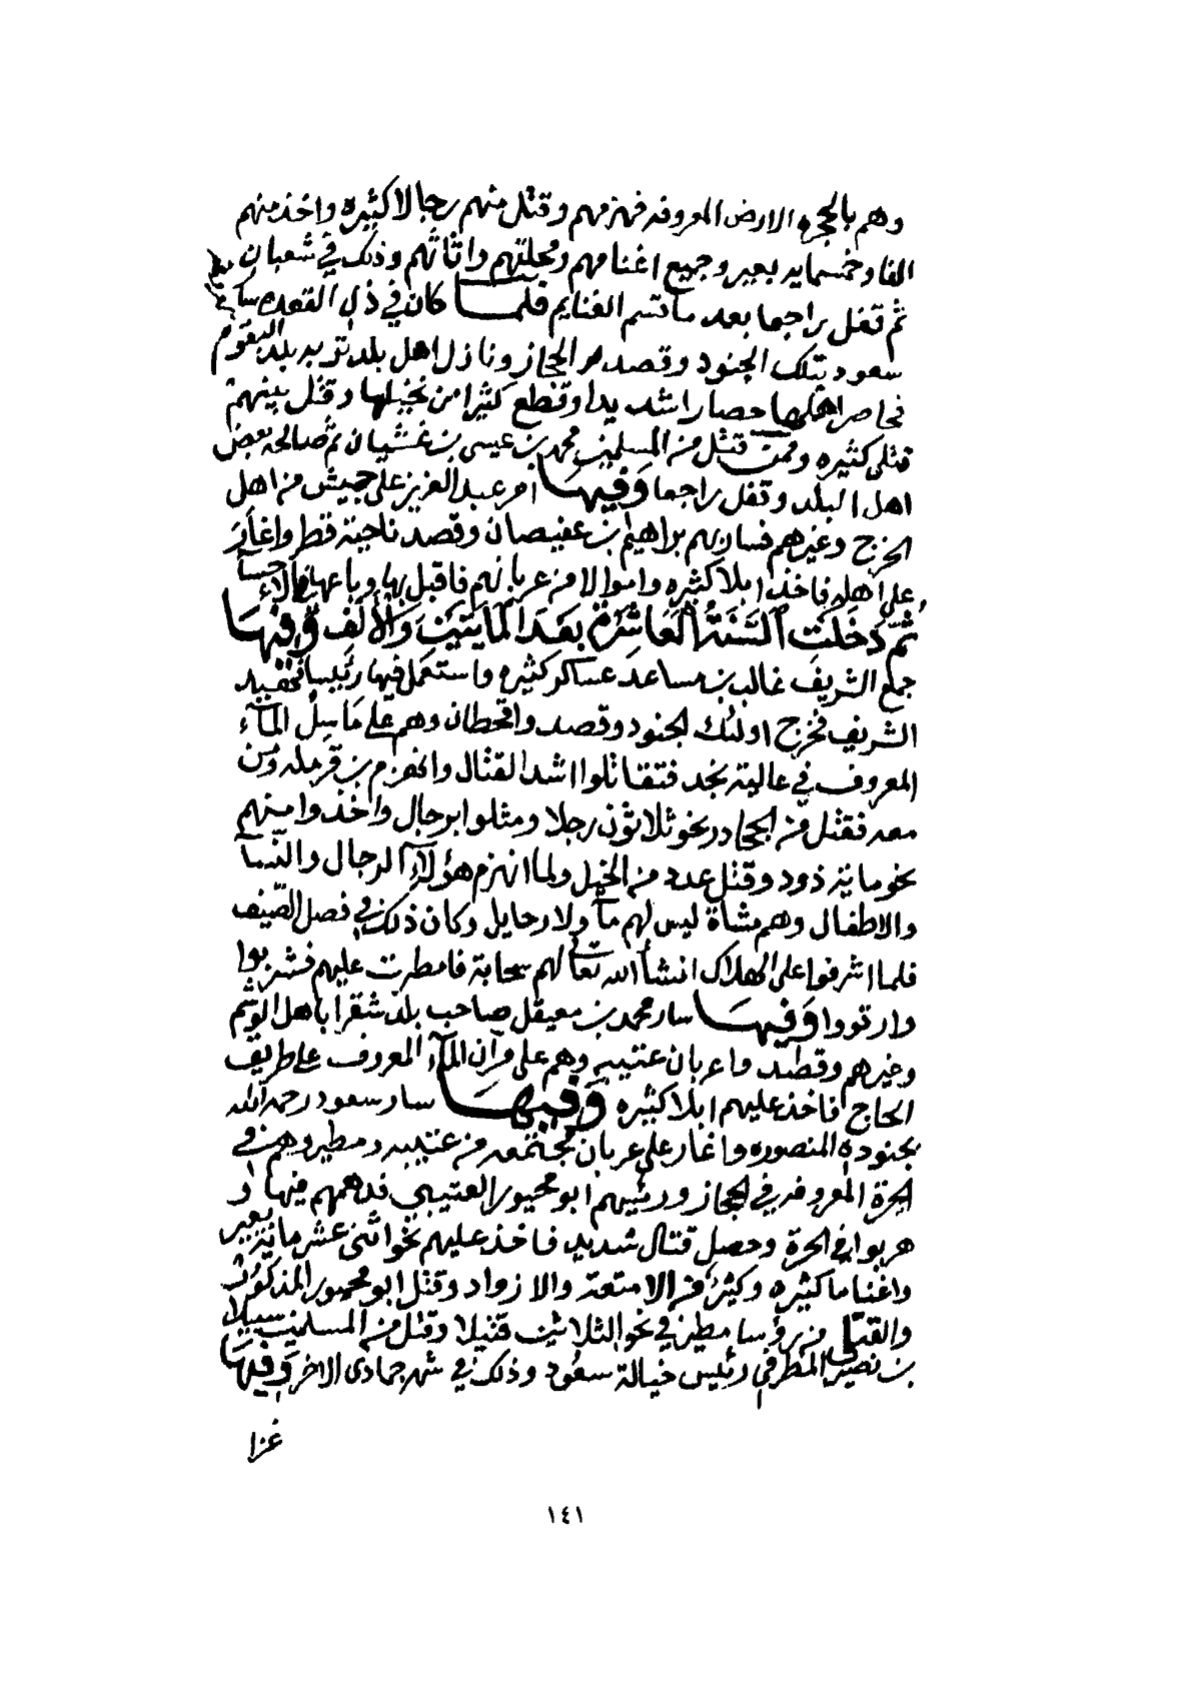 وهم بالحجره الارض المعروفه فهزمهم وقتل منهم رجالا كثيره واخذ منهم
الفا وخمسمايه بعير وجميع اغنامهم ومحلتهم واثاثهم وذلك في شعبان
ثم قفل راجعا بعد ما قسم الغنايم فلما كان في ذي القعده سار
سعود بتلك الجنود وقصد الحجاز ونازل اهل بلد تربه بلد البقوم
فحاصر اهلها حصارا شديدا وقطع كثيرا من نخيلها وقتل بينهم
قتلى كثيره وممن قتل من المسلمين محمد بن عيسى بن غشيان ثم صالحه بعض
اهل البلد وقفل راجعا وفيها امر عبد العزيز على جيش من اهل
الخرج وغيرهم فسار بهم براهيم بن عفيصان وقصد ناحية قطر واغار
على اهله فاخذ ابلا كثيره واموالا من عربانهم فاقبل بها وباعها في الاحسا
ثم دخلت السنة العاشرة بعد المايتين والالف وفيها
جمع الشريف غالب بن مساعد عساكر كثيره واستعمل فيها رئيسا فهيد
الشريف فخرج اولئك الجنود وقصدوا قحطان وهم على ماسل المآء
المعروف في عالية نجد فتقاتلوا اشد القتال وانهزم بن قرمله ومن
معه فقتل من الجحادر نحو ثلاثون رجلا ومثلوا برجال واخذوا منهم
نحو ماية ذود وقتل عدد من الخيل ولما انهزم هؤلآء الرجال والنسآ
والاطفال وهم مشاة ليس لهم مآ ولا رحايل وكان ذلك في فصل الصيف
فلما اشرفوا على الهلاك انشأ الله تعالى لهم سحابة فامطرت عليهم فشربوا
وارتووا وفيها سار محمد بن معيقل صاحب بلد شقرا باهل الوشم
وغيرهم وقصدوا عربان عتيبه وهم على مران المآء المعروف على طريق
الحاج فاخذ عليهم ابلا كثيره وفيها سار سعود رحمه الله
بجنوده المنصوره واغار على عربان مجتمعه من عتيبه ومطير وهم في
الحرة المعروفه في الحجاز ورئيسهم ابو محيور العتيبي فدهمهم فيها و
هربوا في الحرة وحصل قتال شديد فاخذ عليهم نحو اثنى عشر ماية بعير
واغناما كثيره وكثير من الامتعة والازواد وقتل ابو محيور المذكور
والقتلى من رؤسا مطير في نحو الثلاثين قتيلا وقتل من المسلمين سبيلا
بن نصير المطرفي رئيس خيالة سعود وذلك في شهر جمادى الاخر وفيها
غزا
١٤١